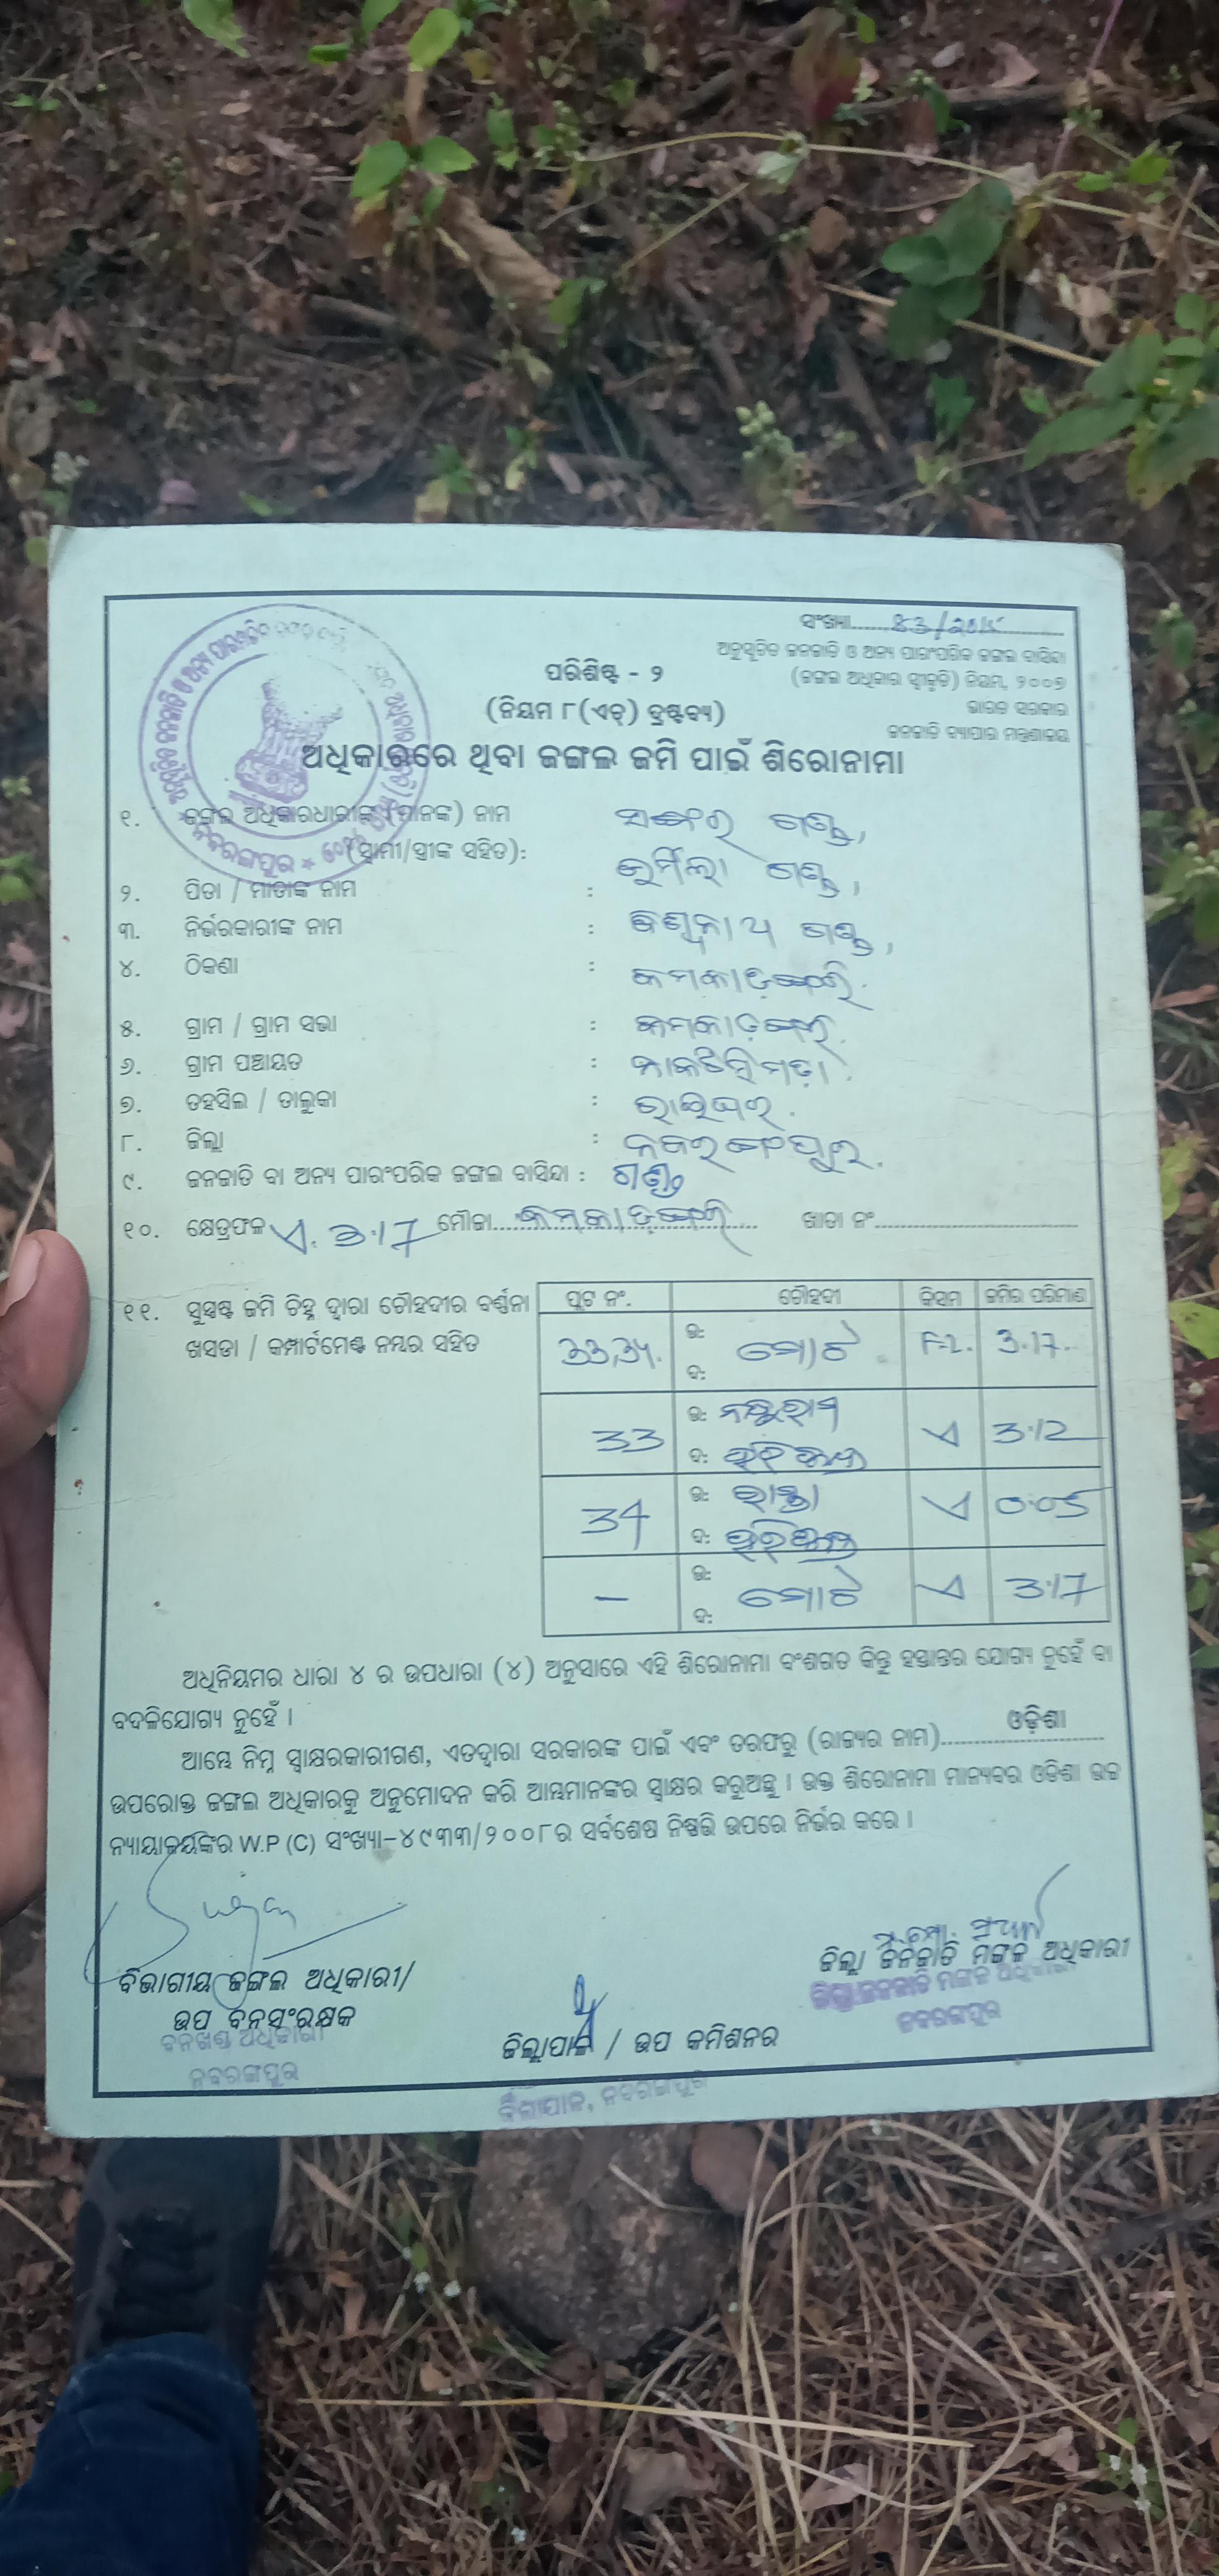 ସଂଖ୍ୟା........83/2015
ଅନୁସୂଚିତ ଜନଜାତି ଓ ଅନ୍ୟ ପାରଂପରିକ ଜଙ୍ଗଲ ବାସିନ୍ଦା
(ଜଙ୍ଗଲ ଅଧିକାର ସ୍ୱୀକୃତି) ନିୟମ, ୨୦୦୭
ଭାରତ ସରକାର
ଜନଜାତି ବ୍ୟାପାର ମନ୍ତ୍ରଣାଳୟ
ପରିଶିଷ୍ଟ - ୨
(ନିୟମ ୮(ଏଚ୍) ଦ୍ରଷ୍ଟବ୍ୟ)
ଅଧିକାରରେ ଥିବା ଜଙ୍ଗଲ ଜମି ପାଇଁ ଶିରୋନାମା
୧. ଜଙ୍ଗଲ ଅଧିକାରଧାରୀଙ୍କ (ମାନଙ୍କ) ନାମ ଗଣ୍ଡ,
(ସ୍ୱାମୀ/ସ୍ତ୍ରୀଙ୍କ ସହିତ): ଉର୍ମିଲା ଗଣ୍ଡ,
୨. ପିତା / ମାତାଙ୍କ ନାମ :
୩. ନିର୍ଭରକାରୀଙ୍କ ନାମ : ଗଣ୍ଡ,
୪. ଠିକଣା :
୫. ଗ୍ରାମ / ଗ୍ରାମ ସଭା :
୬. ଗ୍ରାମ ପଞ୍ଚାୟତ :
୭. ତହସିଲ / ତାଲୁକା : ରାଇଘର.
୮. ଜିଲ୍ଲା : ନବରଙ୍ଗପୁର.
୯. ଜନଜାତି ବା ଅନ୍ୟ ପାରଂପରିକ ଜଙ୍ଗଲ ବାସିନ୍ଦା : ଗଣ୍ଡ
୧୦. କ୍ଷେତ୍ରଫଳ ଏ. 3.17 ମୌଜା........ ଖାତା ନଂ........
୧୧. ସୁସ୍ପଷ୍ଟ ଜମି ଚିହ୍ନ ଦ୍ୱାରା ଚୌହଦୀର ବର୍ଣ୍ଣନା
ଖସଡା / କମ୍ପାର୍ଟମେଣ୍ଟ ନମ୍ବର ସହିତ
ପ୍ଲଟ ନଂ. ଚୌହଦୀ କିସମ ଜମିର ପରିମାଣ
33,34. ଉ: ମୋଟ 3.17.
ଦ:
33 ଉ: ଏ 3.12
ଦ:
34 ଉ: ରାସ୍ତା ଏ 0.05
ଦ:
- ଉ: ମୋଟ ଏ 3.17
ଦ:
ଅଧିନିୟମର ଧାରା ୪ ର ଉପଧାରା (୪) ଅନୁସାରେ ଏହି ଶିରୋନାମା ବଂଶଗତ କିନ୍ତୁ ହସ୍ତାନ୍ତର ଯୋଗ୍ୟ ନୁହେଁ ବା
ବଦଳିଯୋଗ୍ୟ ନୁହେଁ ।
ଆମ୍ଭେ ନିମ୍ନ ସ୍ୱାକ୍ଷରକାରୀଗଣ, ଏତଦ୍ୱାରା ସରକାରଙ୍କ ପାଇଁ ଏବଂ ତରଫରୁ (ରାଜ୍ୟର ନାମ)........ଓଡ଼ିଶା........
ଉପରୋକ୍ତ ଜଙ୍ଗଲ ଅଧିକାରକୁ ଅନୁମୋଦନ କରି ଆମ୍ଭମାନଙ୍କର ସ୍ୱାକ୍ଷର କରୁଅଛୁ । ଉକ୍ତ ଶିରୋନାମା ମାନ୍ୟବର ଓଡ଼ିଶା ଉଚ୍ଚ
ନ୍ୟାୟାଳୟଙ୍କର W.P (C) ସଂଖ୍ୟା-୪୯୩୩/୨୦୦୮ର ସର୍ବଶେଷ ନିଷ୍ପତ୍ତି ଉପରେ ନିର୍ଭର କରେ ।
ବିଭାଗୀୟ ଜଙ୍ଗଲ ଅଧିକାରୀ/
ଉପ ବନସଂରକ୍ଷକ
ବନଖଣ୍ଡ ଅଧିକାରୀ
ନବରଙ୍ଗପୁର
ଜିଲ୍ଲାପାଳ / ଉପ କମିଶନର
ଜିଲ୍ଲାପାଳ, ନବରଙ୍ଗପୁର
ଜିଲ୍ଲା ଜନଜାତି ମଙ୍ଗଳ ଅଧିକାରୀ
ଜିଲ୍ଲା ଜନଜାତି ମଙ୍ଗଳ ଅଧିକାରୀ
ନବରଙ୍ଗପୁର